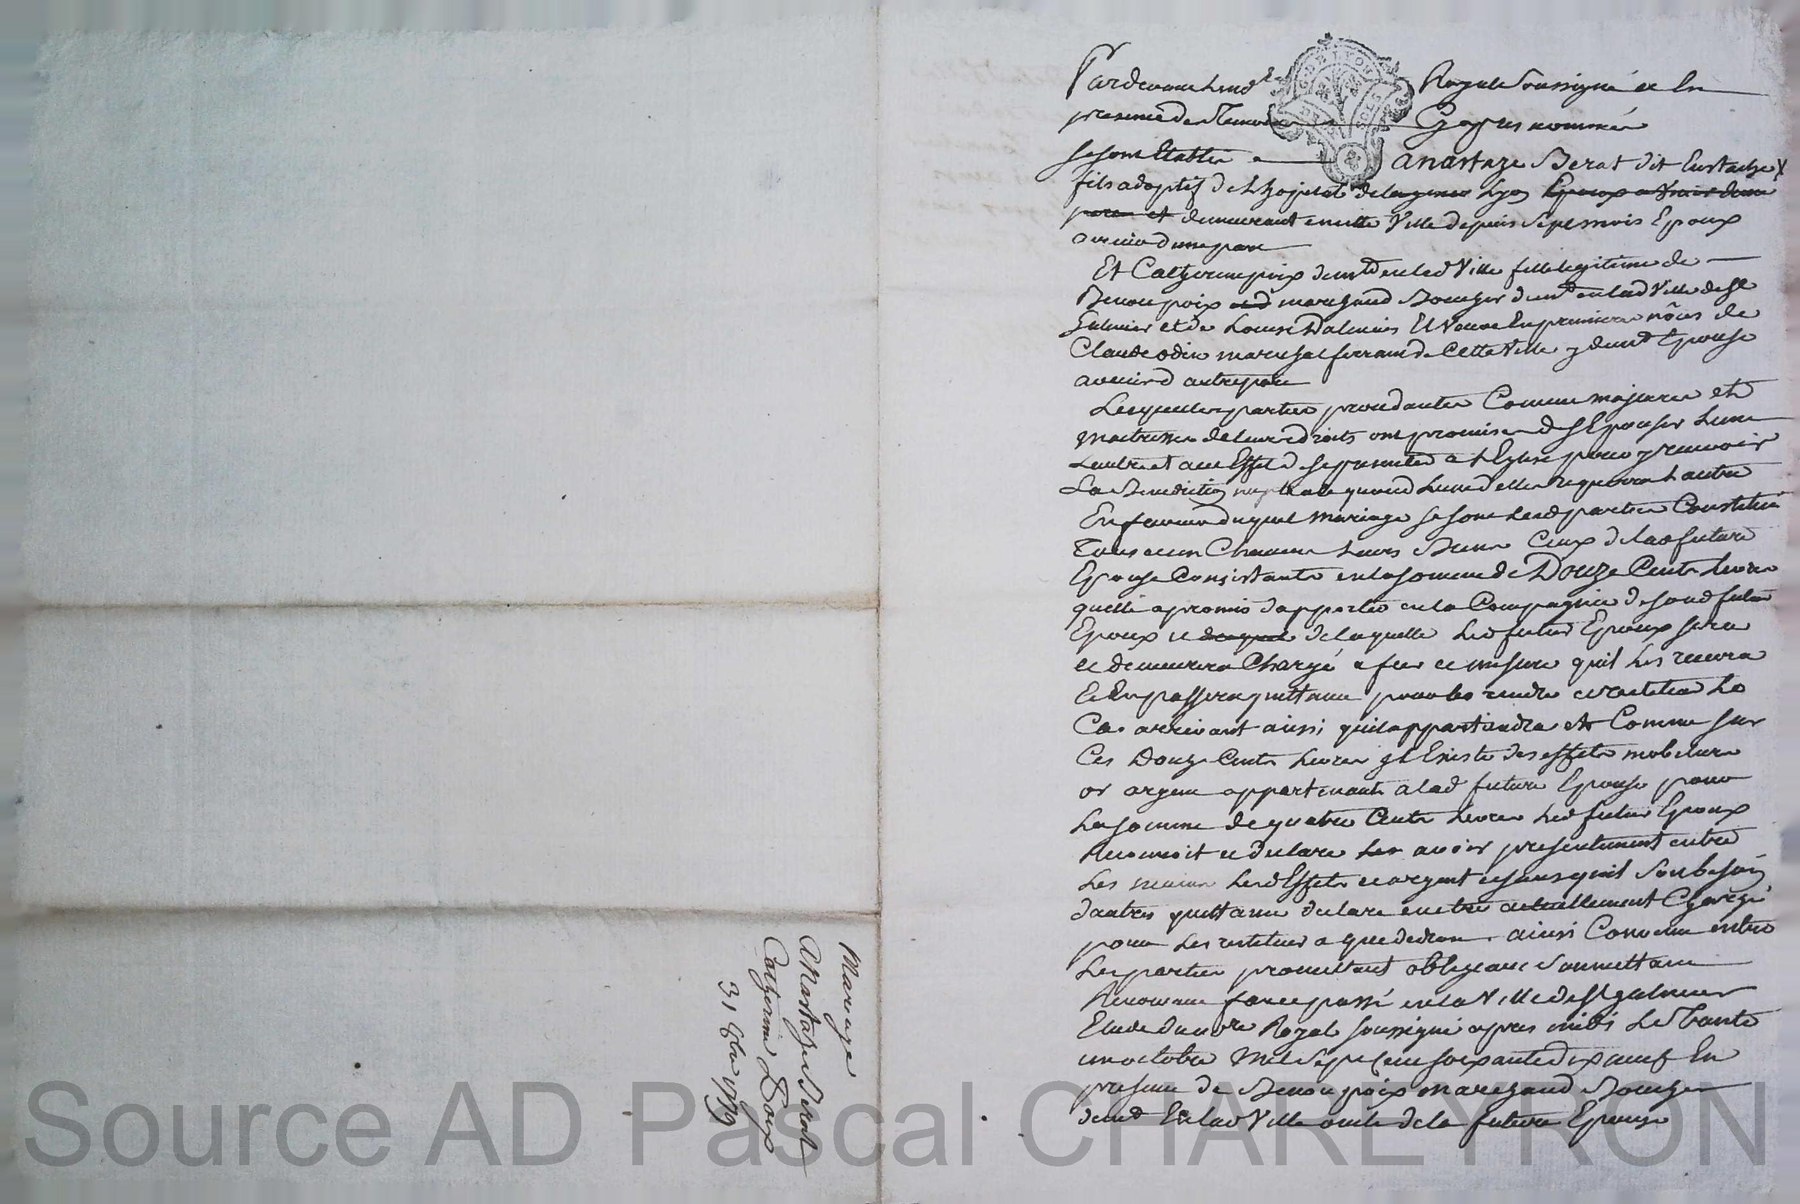 Pardevant Le nore Royal Soussigné et En
presence des Temoins Cy apres nommés
se sont Etablis Anastaze Berat dit Eustache
fils adoptif de L'hopital de Lyon
pere et demeurant en cette Ville depuis Sept mois Epoux
avenir d'une part
Et Catherine poix demte en lad Ville fille legitime de
Benoit poix marchand Boucher demt en lad Ville de St
Galmier et de Louise Dalmais Et Veuve En premieres nôces de
Claude odin marechal ferrant de Cette Ville y demte Epouse
avenir d'autre part
Lesquelles parties procedantes Comme majeures et
maitresses de leurs droits ont promis de s'Epouser L'une
L'autre et a cet Effet de se presenter a L'Eglise pour y recevoir
La Benediction nuptiale quand L'une d'elles en requerra L'autre
En faveur duquel mariage se sont Lesd parties Constitué
Tous et un Chacun Leurs Biens Ceux de lad future
Epouse Consistants en la somme de Douze Cents Livres
quelle a promis d'apporter en la Compagnie de son d futur
Epoux et de laquelle Led futur Epoux sera
et demeurera Chargé a fur et mesure quil Les recevra
Et En passera quittance pour les rendre et restituer Le
Cas arrivant ainsi quil appartiendra et Comme sur
Ces Douze Cents Livres il Existe des effets mobiliers
or argent appartenants a lad future Epouse pour
La somme de quatre Cents Livres Led futur Epoux
Reconnoit et declare Les avoir presentement entre
Les mains Lesd Effets et argent et sans quil soit besoin
d'autres quittance declare en etre actuellement Chargé
pour Les restituer a que dedroit. ainsi Convenu entre
Les parties promettant obligeant Soumettant
Renonceant fait et passé en la Ville de St galmier
Etude du nore Royal soussigné apres midi Le Trante
un octobre Mil Sept Cent soixante dix neuf En
presence de Benoit poix marchand Boucher
demt En lad Ville oncle de la future Epouse
Mariage
Anastaze Berat
Catherine Poix
31 8bre 1779
Source AD Pascal CHAREYRON